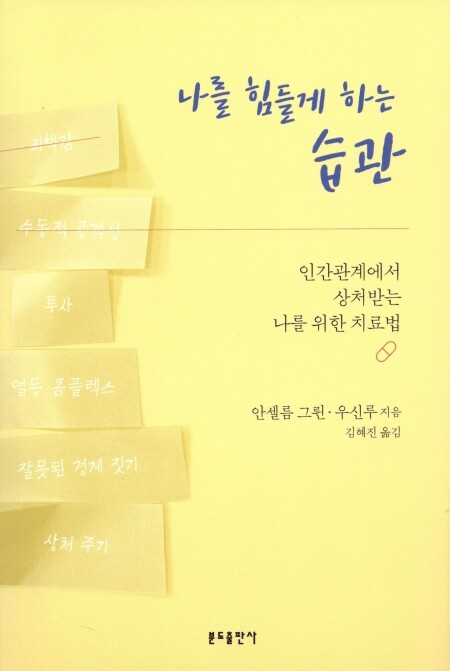 나를 힘들게 하는
습관
죄책감
수동적 공격성
투사
열등 콤플렉스
잘못된 경계 짓기
상처 주기
인간관계에서
상처받는
나를 위한 치료법
안셀름 그륀·우신루 지음
김혜진 옮김
분도출판사